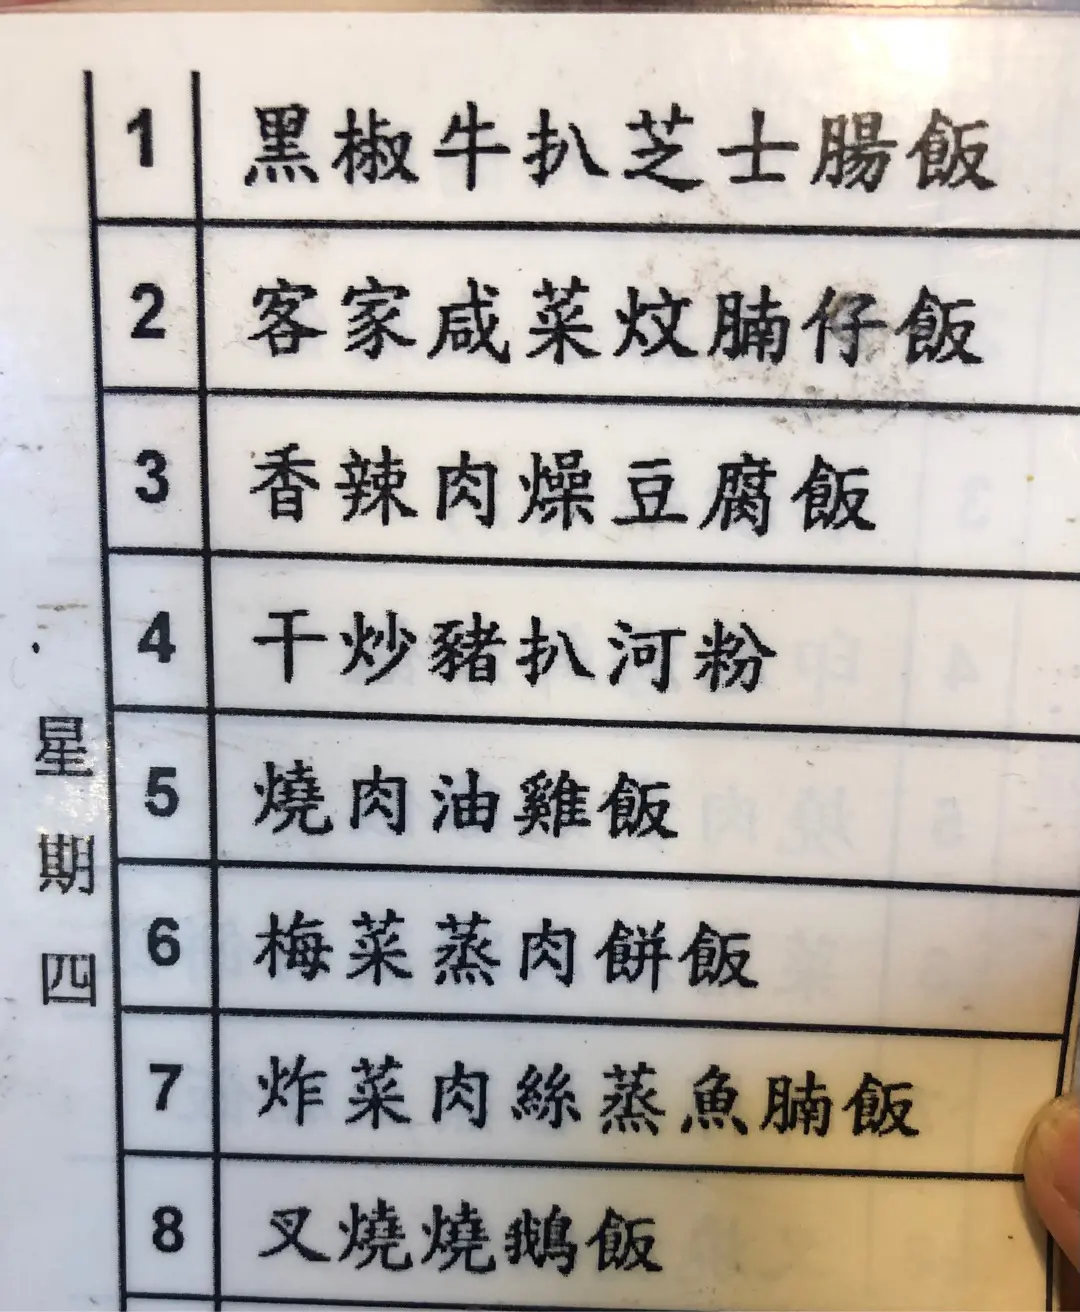 星期四
1 黑椒牛扒芝士腸飯
2 客家咸菜炆腩仔飯
3 香辣肉燥豆腐飯
4 干炒豬扒河粉
5 燒肉油雞飯
6 梅菜蒸肉餅飯
7 炸菜肉絲蒸魚腩飯
8 叉燒燒鵝飯